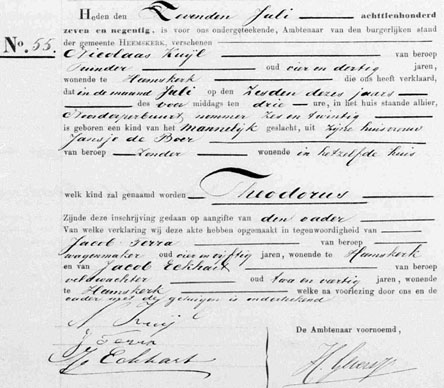 Heden den Zevenden Juli achttienhonderd
zeven en negentig, is voor ons ondergeteekende, Ambtenaar van den burgerlijken stand
der gemeente HEEMSKERK, verschenen
No. 55.
Nicolaas Kuijl van beroep
oud vier en dertig jaren,
wonende te Heemskerk die ons heeft verklaard,
dat in de maand Juli op den Zesden dezes jaars
des voor middags ten drie ure, in het huis staande alhier,
nummer zes en twintig
is geboren een kind van het Mannelijk geslacht, uit Zijne huisvrouw
Jansje de Boer
van beroep Zonder wonende in hetzelfde huis
welk kind zal genaamd worden Theodorus
Zijnde deze inschrijving gedaan op aangifte van den vader
Van welke verklaring wij deze akte hebben opgemaakt in tegenwoordigheid van
Jacob Terra van beroep
wagenmaker oud vier en vijftig jaren, wonende te Heemskerk
en van Jacob Eckhart van beroep
veldwachter oud twee en veertig jaren, wonende
te Heemskerk welke na voorlezing door ons en de
vader met de getuigen is onderteekend
J Terra
Eckhart
De Ambtenaar voornoemd,